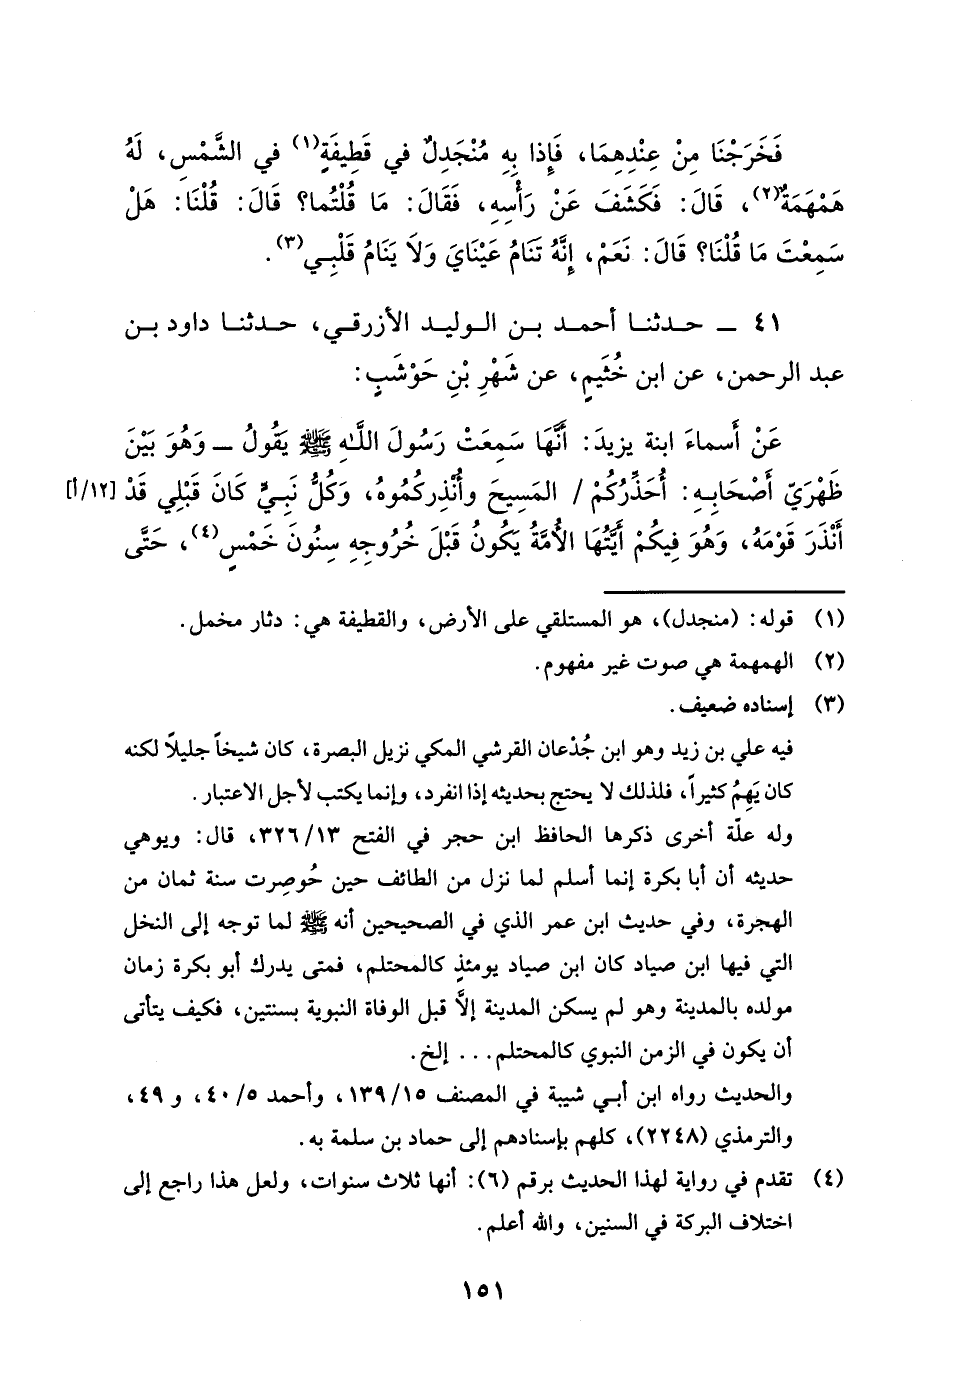 فَخَرَجْنَا مِنْ عِنْدِهِمَا، فَإِذا بِهِ مُنْجَدِلٌ في قَطِيفَةٍ(١) في الشَّمْسِ، لَهُ
هَمْهَمَةٌ(٢)، قَالَ: فَكَشَفَ عَنْ رَأْسِهِ، فَقَالَ: مَا قُلْتُما؟ قَالَ: قُلْنَا: هَلْ
سَمِعْتَ مَا قُلْنَا؟ قَالَ: نَعَمْ، إِنَّهُ تَنَامُ عَيْنَايَ وَلاَ يَنَامُ قَلْبِي(٣).
٤١ ـ حدثنا أحمد بن الوليد الأزرقي، حدثنا داود بن
عبد الرحمن، عن ابن خُثَيمٍ، عن شَهْرِ بْنِ حَوْشَبٍ:
عَنْ أَسماءَ ابنة يزيدَ: أَنَّهَا سَمِعَتْ رَسُولَ اللَّهِ ﷺ يَقُولُ ـ وَهُوَ بَيْنَ
ظَهْرَيّ أَصْحَابِهِ: أُحَذِّرُكُمْ / المَسِيحَ وأُنْذِركُمُوهُ، وَكُلُّ نَبِيٍّ كَانَ قَبْلِي قَدْ [١٢/أ]
أَنْذَرَ قَوْمَهُ، وَهُوَ فِيكُمْ أَيَّتُهَا الأُمَّةُ يَكُونُ قَبْلَ خُرُوجِهِ سِنُونَ خَمْسٍ(٤)، حَتَّى
(١) قوله: (منجدل)، هو المستلقي على الأرض، والقطيفة هي: دثار مخمل.
(٢) الهمهمة هي صوت غير مفهوم.
(٣) إسناده ضعيف.
فيه علي بن زيد وهو ابن جُدْعان القرشي المكي نزيل البصرة، كان شيخاً جليلاً لكنه
كان يَهِمُ كثيراً، فلذلك لا يحتج بحديثه إذا انفرد، وإنما يكتب لأجل الاعتبار.
وله علّة أخرى ذكرها الحافظ ابن حجر في الفتح ٣٢٦/١٣، قال: ويوهي
حديثه أن أبا بكرة إنما أسلم لما نزل من الطائف حين حُوصِرت سنة ثمان من
الهجرة، وفي حديث ابن عمر الذي في الصحيحين أنه ﷺ لما توجه إلى النخل
التي فيها ابن صياد كان ابن صياد يومئذٍ كالمحتلم، فمتى يدرك أبو بكرة زمان
مولده بالمدينة وهو لم يسكن المدينة إلاَّ قبل الوفاة النبوية بسنتين، فكيف يتأتى
أن يكون في الزمن النبوي كالمحتلم... إلخ.
والحديث رواه ابن أبي شيبة في المصنف ١٣٩/١٥، وأحمد ٤٠/٥، و ٤٩،
والترمذي (٢٢٤٨)، كلهم بإسنادهم إلى حماد بن سلمة به.
(٤) تقدم في رواية لهذا الحديث برقم (٦): أنها ثلاث سنوات، ولعل هذا راجع إلى
اختلاف البركة في السنين، والله أعلم.
١٥١